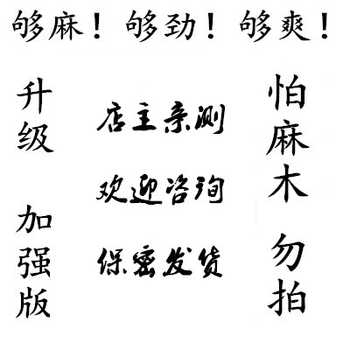 够麻！够劲！够爽！
升级
加强版
店主亲测
欢迎咨询
保密发货
怕麻木
勿拍